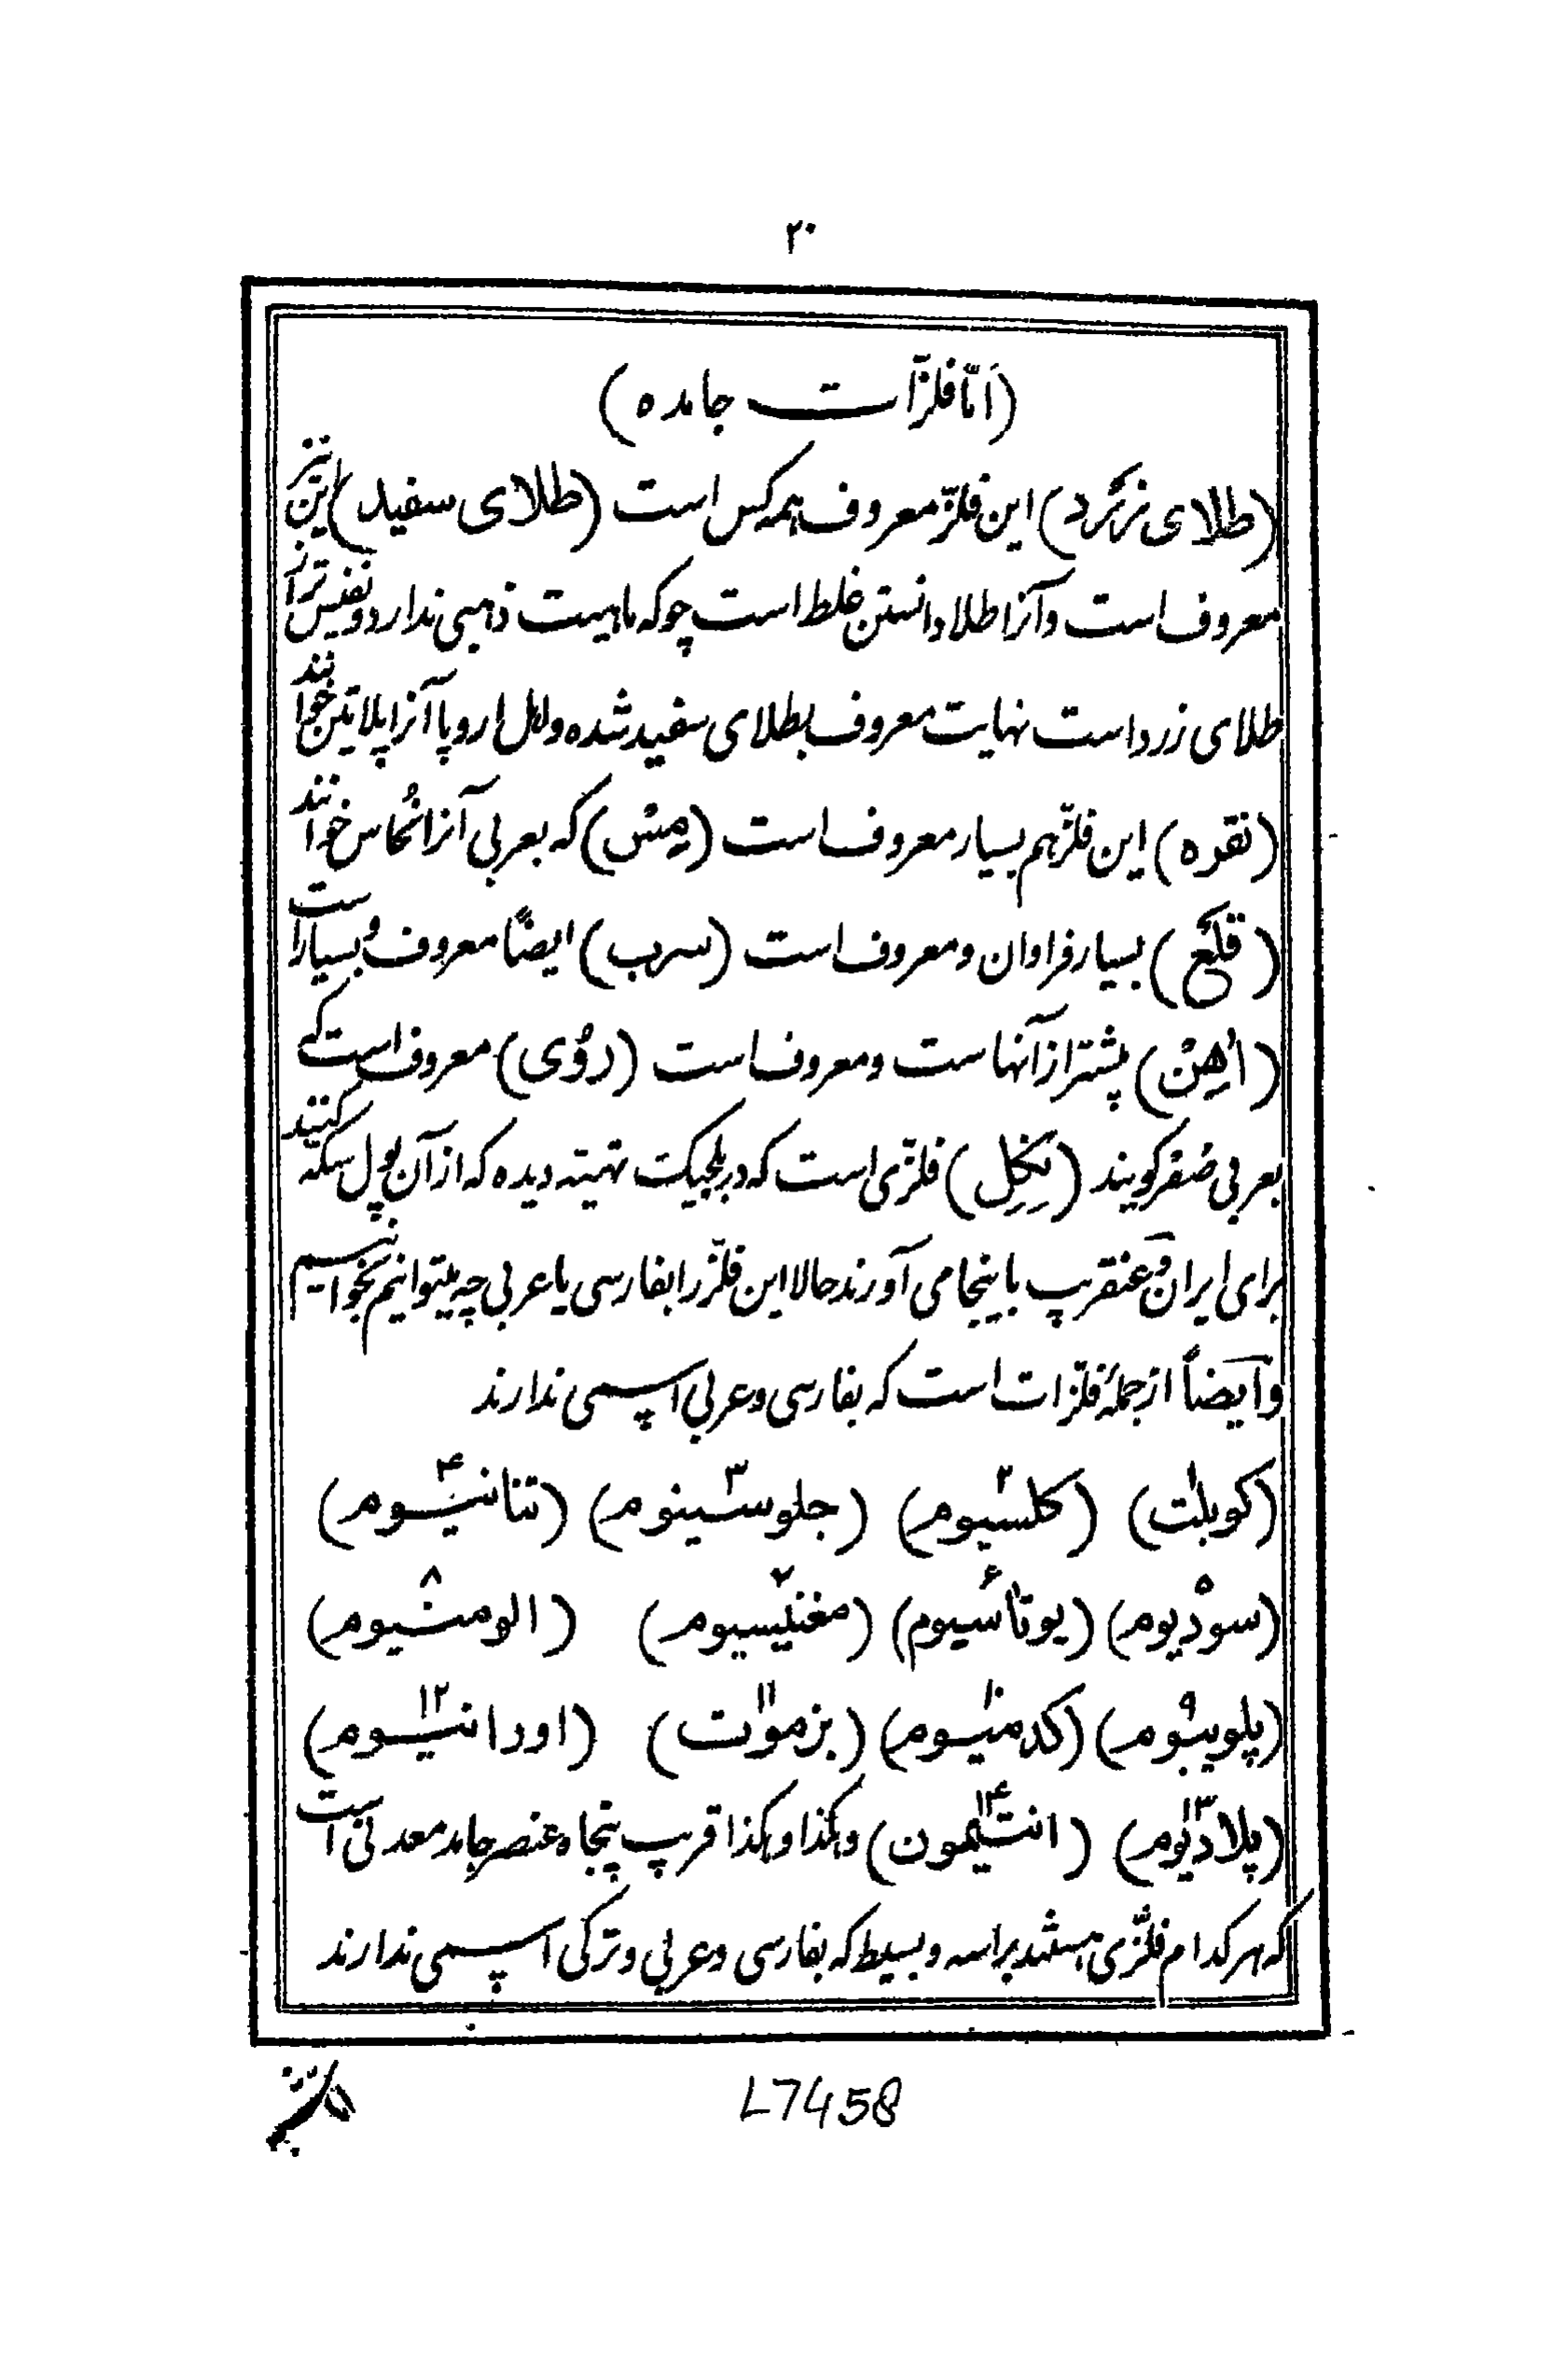 ۲۰
(اَمّا فلزّات جامده)
(طلای زرد) این فلزّ معروف همه کس است (طلای سفید) این نیز
معروف است و آنرا طلا دانستن غلط است چو که ماهیت ذهبی ندارد و نفیس تر از
طلای زرد است نهایت معروف بطلای سفید شده و اهل اروپا آنرا پلاتین خوانند
(نقره) این فلزّ هم بسیار معروف است (مِسْ) که بعربی آنرا نُحاس خوانند
(قلع) بسیار فراوان و معروف است (سرب) ایضاً معروف و بسیار است
(اهِنْ) بیشتر از آنهاست و معروف است (رُوی) معروف است که
بعربی صُفر گویند (نِکِلِ) فلزّی است که در بلجیک تهیته دیده که از آن پول سکّه کنند
برای ایران و عنقریب باینجا می آورند حالا این فلزّ را بفارسی یا عربی چه میتوانیم بخوانیم
و ایضاً از جملهٔ فلزّات است که بفارسی و عربی اسمی ندارند
(کوبلت) ۱ (کلسیوم) ۲ (جلوسینوم) ۳ (تتانیوم) ۴
(سودیوم) ۵ (پوتاسیوم) ۶ (مغنیسیوم) ۷ (الومنیوم) ۸
۹ (کدمیوم) ۱۰ (بزموت) ۱۱ (اورانیوم) ۱۲
(پلادیوم) ۱۳ (انتیمون) ۱۴ و هکذا و هکذا قریب پنجاه عنصر جامد معدنی است
که هر کدام فلزّی هستند براسه و بسیط که بفارسی و عربی و ترکی اسمی ندارند
L7458